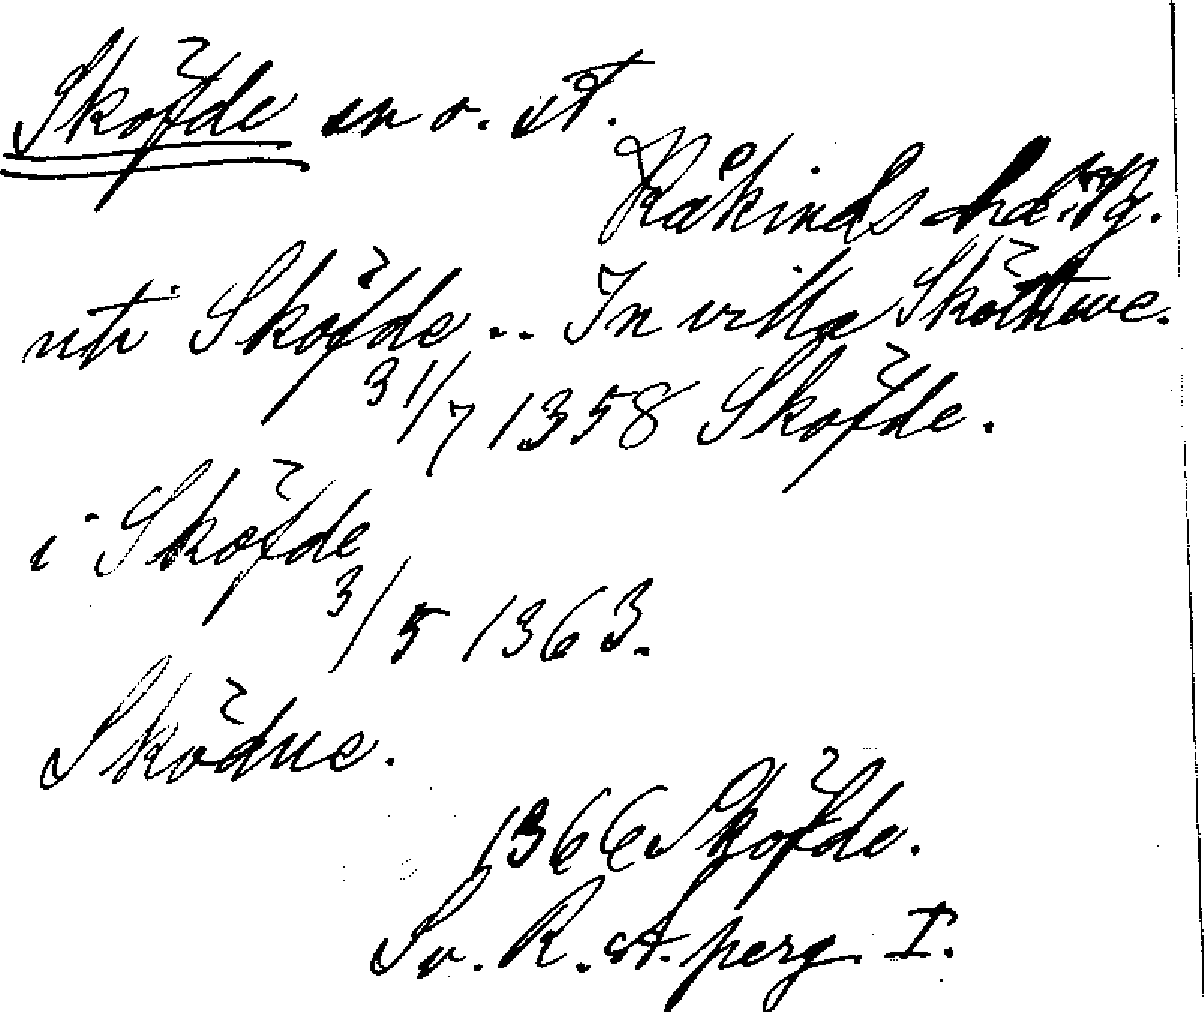 Sköfde sn o. st.
Kåkinds hd. Vg.
uti Sköfde .. In villa Sköthwe.
31/7 1358 Sköfde.
i Sköfde
3/5 1363.
Sködue.
1366 Sköfde.
Sv. R. A. perg. I.